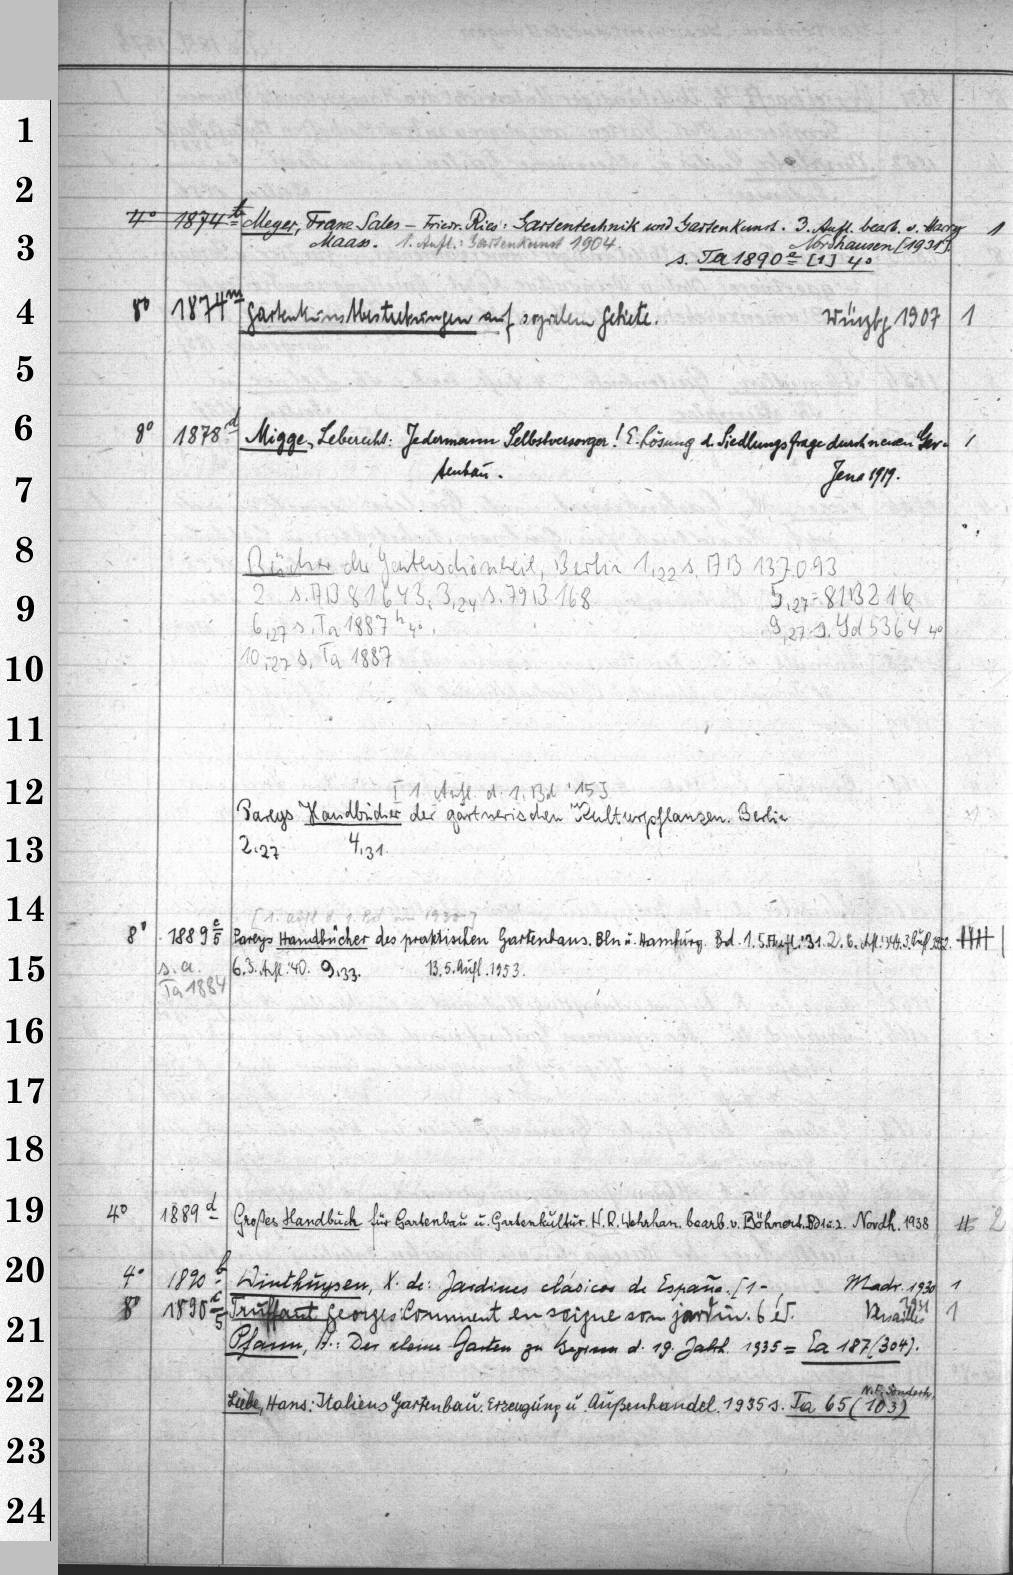 1
2
3
4
5
6
7
8
9
10
11
12
13
14
15
16
17
18
19
20
21
22
23
24
4° 1874 b Meyer, Franz Sales – Friedr. Ries: Gartentechnik und Gartenkunst. 3. Aufl. bearb. v. Harry 1
Maass. 1. Aufl.: Gartenkunst 1904. Nordhausen [1931]
s. Ta 1890 a [1] 4°
8° 1874 m Gartenkunstbestrebungen auf sozialem Gebiete. Würzbg 1907 1
8° 1878 d Migge, Leberecht: Jedermann Selbstversorger! E. Lösung d. Siedlungsfrage durch neuen Gar- 1
tenbau. Jena 1919.
Bücher der Gartenschönheit, Berlin 1,22 s. AB 137093
2 s. AB 81643; 3,24 s. 79B168 5,27 = 81B216
6,27 s. Ta 1887 h 4°. 9,27 s. Gd 5364 4°
10,27 s. Ta 1887
[1. Aufl. d. 1. Bd '15]
Pareys Handbücher der gärtnerischen Kulturpflanzen. Berlin
2.27 4.31.
8° 1889 c/5 Pareys Handbücher des praktischen Gartenbaus. Bln u. Hamburg. Bd. 1.5. Aufl.'31. 2. 6. Afl.'44. 3. Aufl. 1952.
s. a. 6.3. Afl.'40. 9.33. 13.5. Aufl. 1953.
Ta 1884
4° 1889 d Großes Handbuch für Gartenbau u. Gartenkultur. H. R. Wehrhan. bearb. v. Böhnert. Bd 1 u. 2. Nordh. 1938 2
4° 1890 b Winthuysen, X. de: Jardines clásicos de España. [1-, Madr. 1930 1
8° 1890 c/5 Truffaut Georges: Comment on soigne son jardin. 6 éd. Versailles 1931 1
Pfann, H.: Der kleine Garten zu Beginn d. 19. Jahrh. 1935 = Ea 187 (304).
N. F. Sonderh.
Liebe, Hans: Italiens Gartenbau. Erzeugung u. Außenhandel. 1935 s. Ta 65 (103)